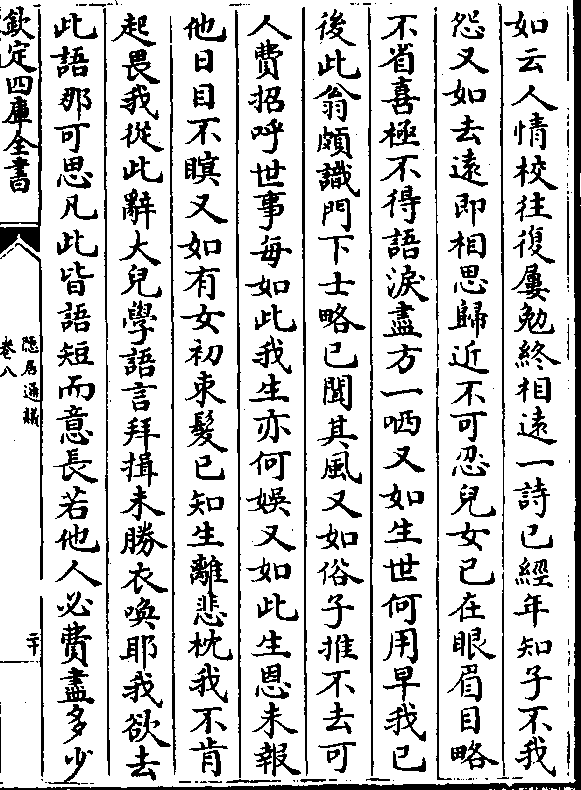 如云人情校往復屢勉終相遠一詩已經年知子不我
怨又如去遠即相思歸近不可忍兒女已在眼眉目略
不省喜極不得語淚盡方一哂又如生世何用早我已
後此翁頗識門下士略已聞其風又如俗子推不去可
人費招呼世事每如此我生亦何娛又如此生恩未報
他日目不瞑又如有女初束髮已知生離悲枕我不肯
起畏我從此辭大兒學語言拜揖未勝衣喚耶我欲去
此語那可思凡此皆語短而意長若他人必費盡多少
欽定四庫全書
隱居通議
卷八
二十